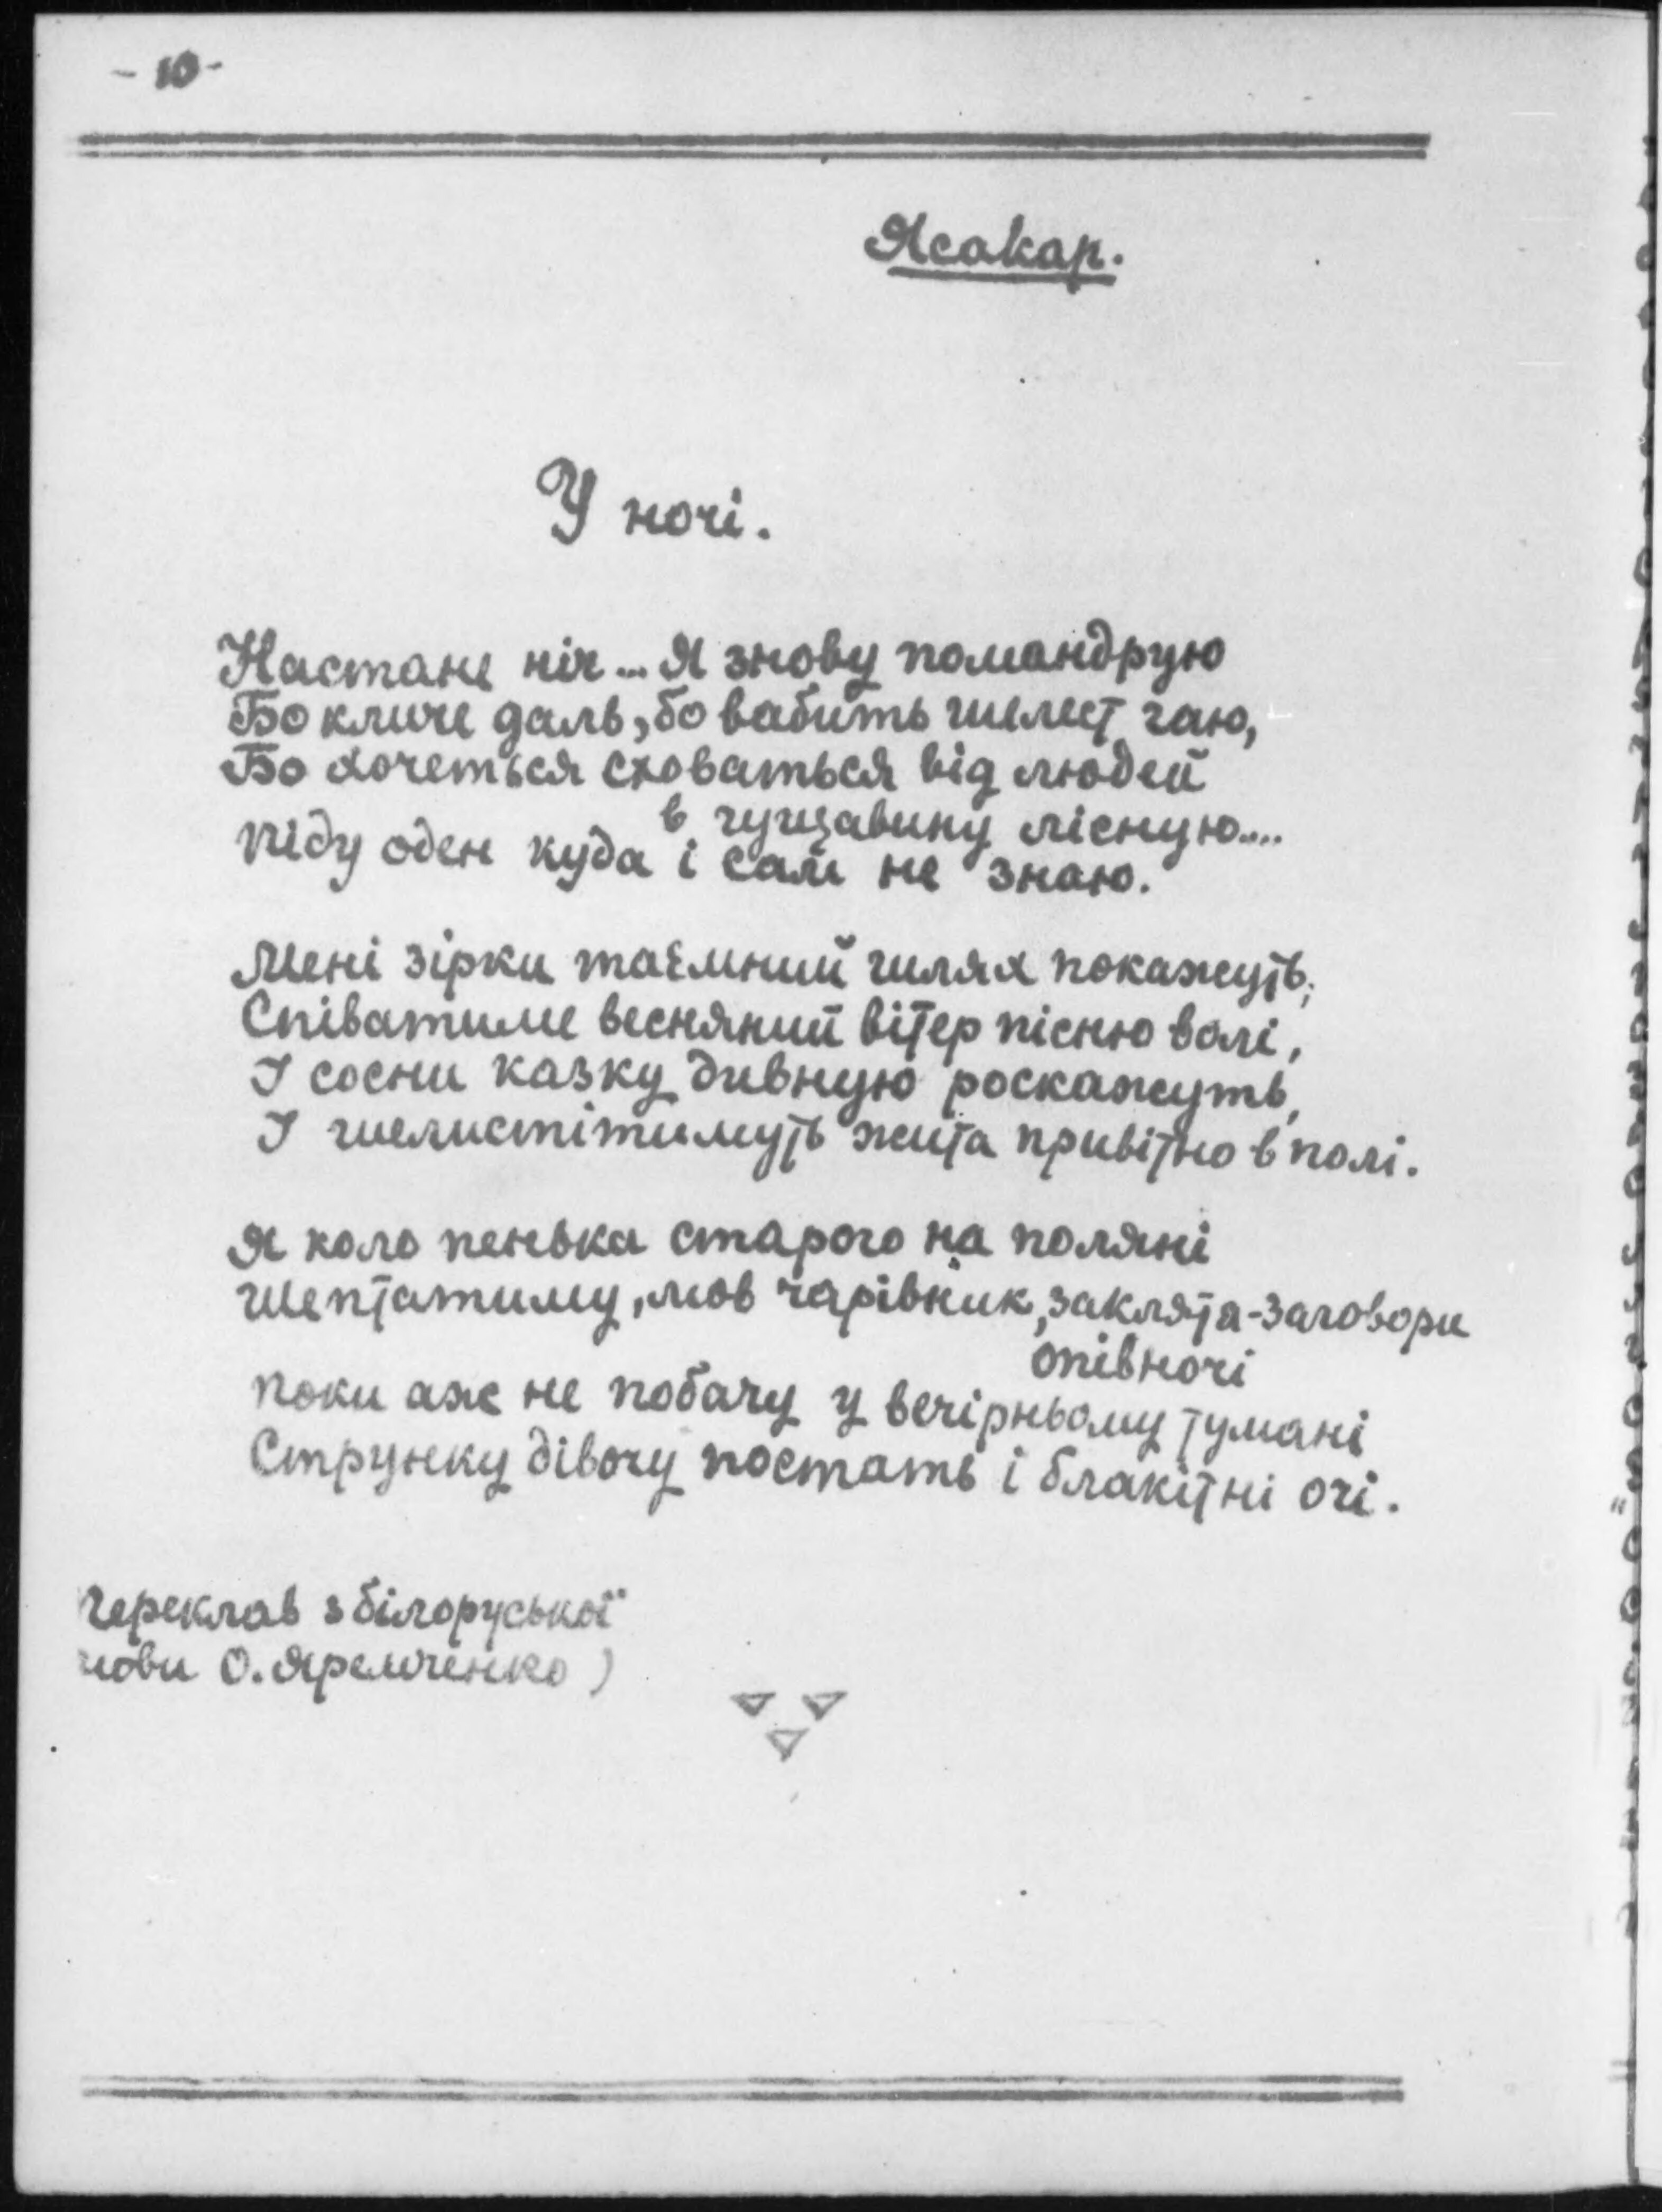 - 10 -
Ясакар.
У ночі.
Настане ніч... Я знову помандрую
Бо кличе даль, бо вабить шелест гаю,
Бо хочеться сховаться від людей
в гущавину лісную....
піду оден куда і сам не знаю.
Мені зірки таємний шлях покажуть,
Співатиме весняний вітер пісню волі,
І сосни казку дивную роскажуть,
І шелистітимуть жита привітно в полі.
Я коло пенька старого на поляні
Шептатиму, мов чарівник, заклятя-заговори
опівночі
поки аж не побачу у вечірньому тумані
Струнку дівочу постать і блакітні очі.
переклав з білоруської
мови О. Яремченко)